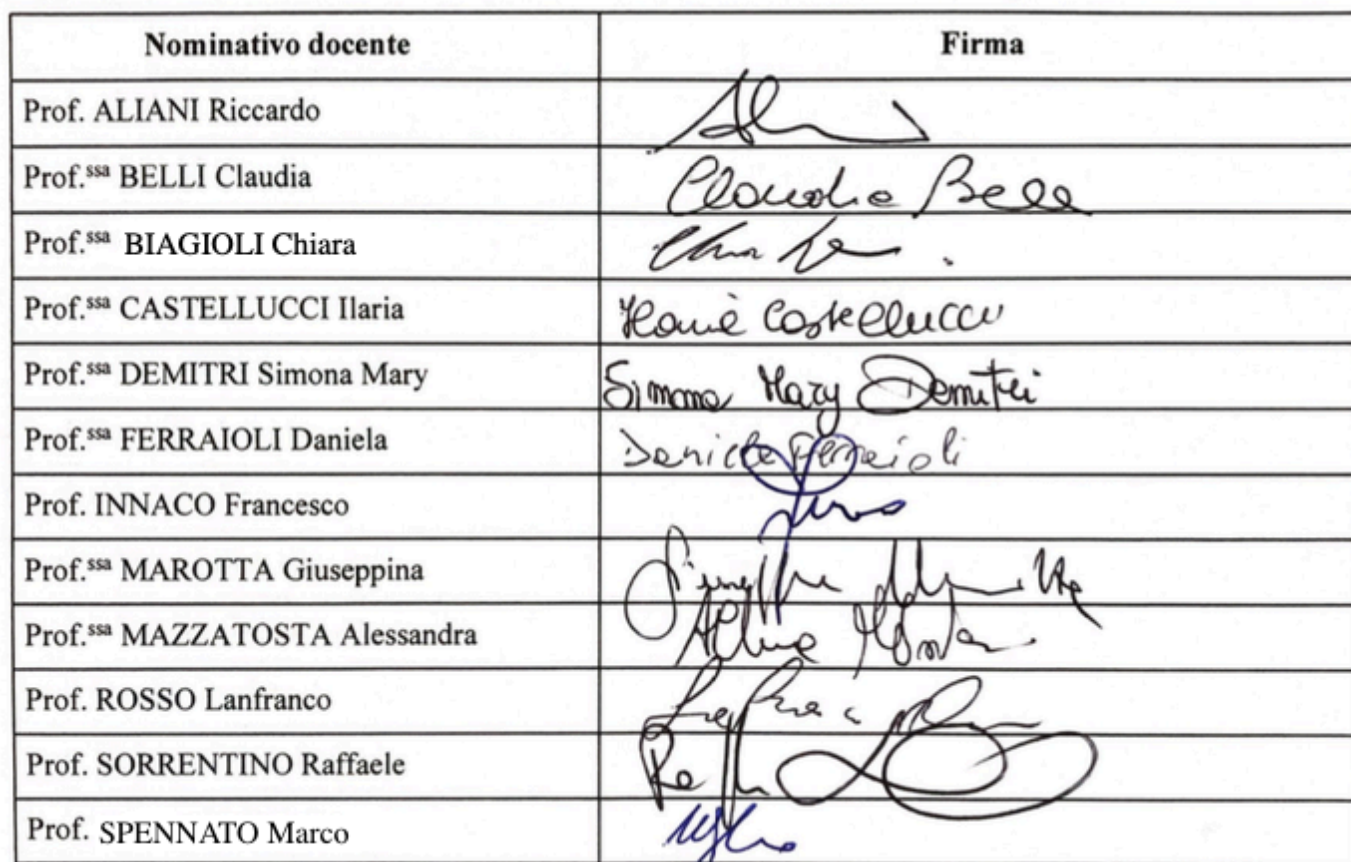 Nominativo docente Firma
Prof. ALIANI Riccardo
Prof.ssa BELLI Claudia Claudia Belli
Prof.ssa BIAGIOLI Chiara
Prof.ssa CASTELLUCCI Ilaria Ilaria Castellucci
Prof.ssa DEMITRI Simona Mary Simona Mary Demitri
Prof.ssa FERRAIOLI Daniela Daniela Ferraioli
Prof. INNACO Francesco
Prof.ssa MAROTTA Giuseppina
Prof.ssa MAZZATOSTA Alessandra
Prof. ROSSO Lanfranco
Prof. SORRENTINO Raffaele
Prof. SPENNATO Marco